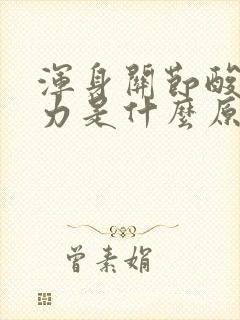 渾身關節酸
力是什麼原
曾素娟